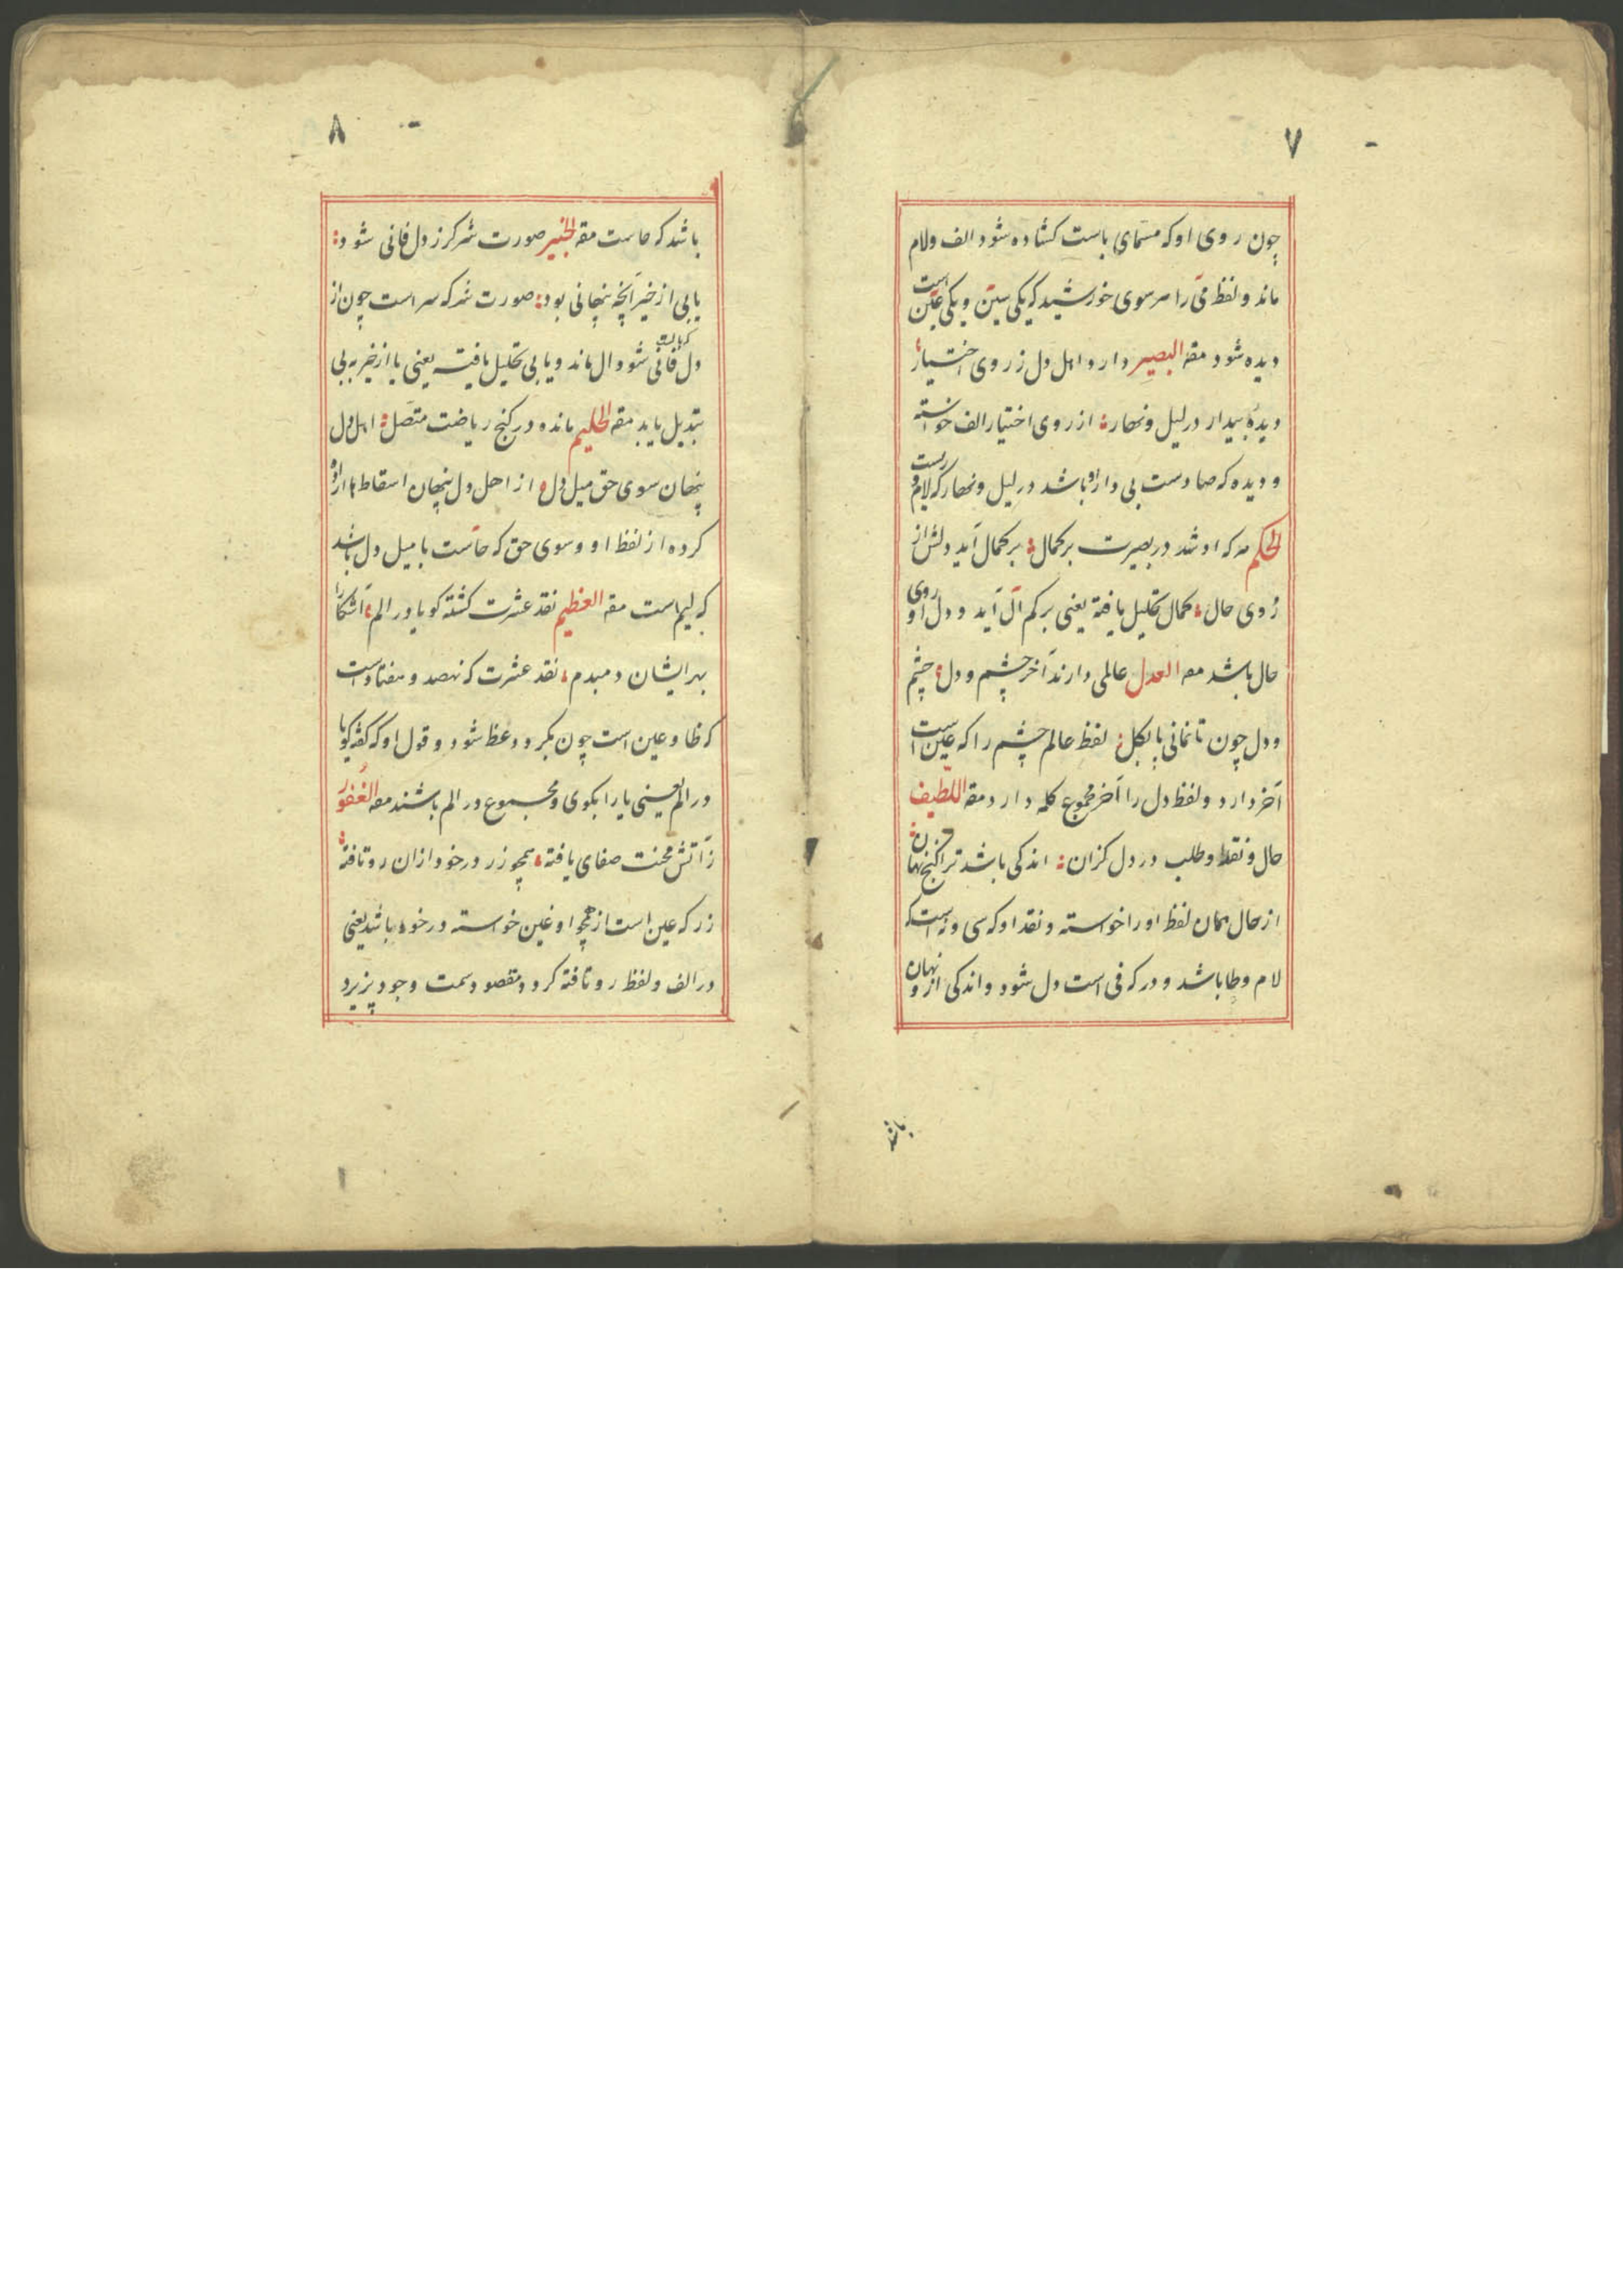 ٧
چون روی او که مسمای باست کشاده شود الف ولام
ماند و لفظ می را سر سوی خورشید که یکی سین و یکی عین است
دیده شود مقه البصیر دارد اهل دل ز روی اختیار
دیدهٔ بیدار در لیل و نهار از روی اختیار الف خواسته
و دیده که صادست بی دارو باشد در لیل و نهار که لام ورست
الحکم مه که او شد در بصیرت بر کمال بر کمال آید دلش از
روی حال کمال تحلیل یافته یعنی بر کم ال آید و دل او روی
حال باشد مه العدل عالمی دارند آخر چشم و دل چشم
و دل چون تا نمانی پا بکل لفظ عالم چشم را که عین است
آخر دارد و لفظ دل را آخر مجموع کلمه دارد مقه اللطیف
حال و نقد و طلب در دل کزان اندکی باشد ترا کنج نهان
از حال همان لفظ او را خواسته و نقد او که سی و نه است که
لام و طا باشد و در که فی است دل شود و اندکی از و نهان
باشد
٨
باشد که حاست مقه الخبیر صورت شر کرز دل فانی شود
یابی از خیر آنچه پنهانی بود صورت شر که سر است چون از
دل که بال است فانی شود ال ماند و یابی تحلیل یافته یعنی یا از خیر به بی
تبدیل یابد مقه الحلیم مانده در کنج ریاضت متصل اهل دل
پنهان سوی حق میل دل از اهل دل پنهان اسقاط ها اراده
کرده از لفظ او و سوی حق که حاست با میل دل باشد
که لیم است مقه العظیم نقد عشرت کشته کو یا در الم آشکارا
بهر ایشان دمبدم نقد عشرت که نهصد و هفتاد است
که ظا و عین است چون بکردد عظ شود و قول او که کفته کو یا
در الم یعنی یا را بکوی و مجموع در الم باشند مقه الغفور
ز آتش محنت صفای یافته همچو زر در خود ازان رو تافته
زر که عین است از همچو او غین خواسته و در خود باشد یعنی
در الف و لفظ رو تافته کردد مقصود سمت وجود پزیرد